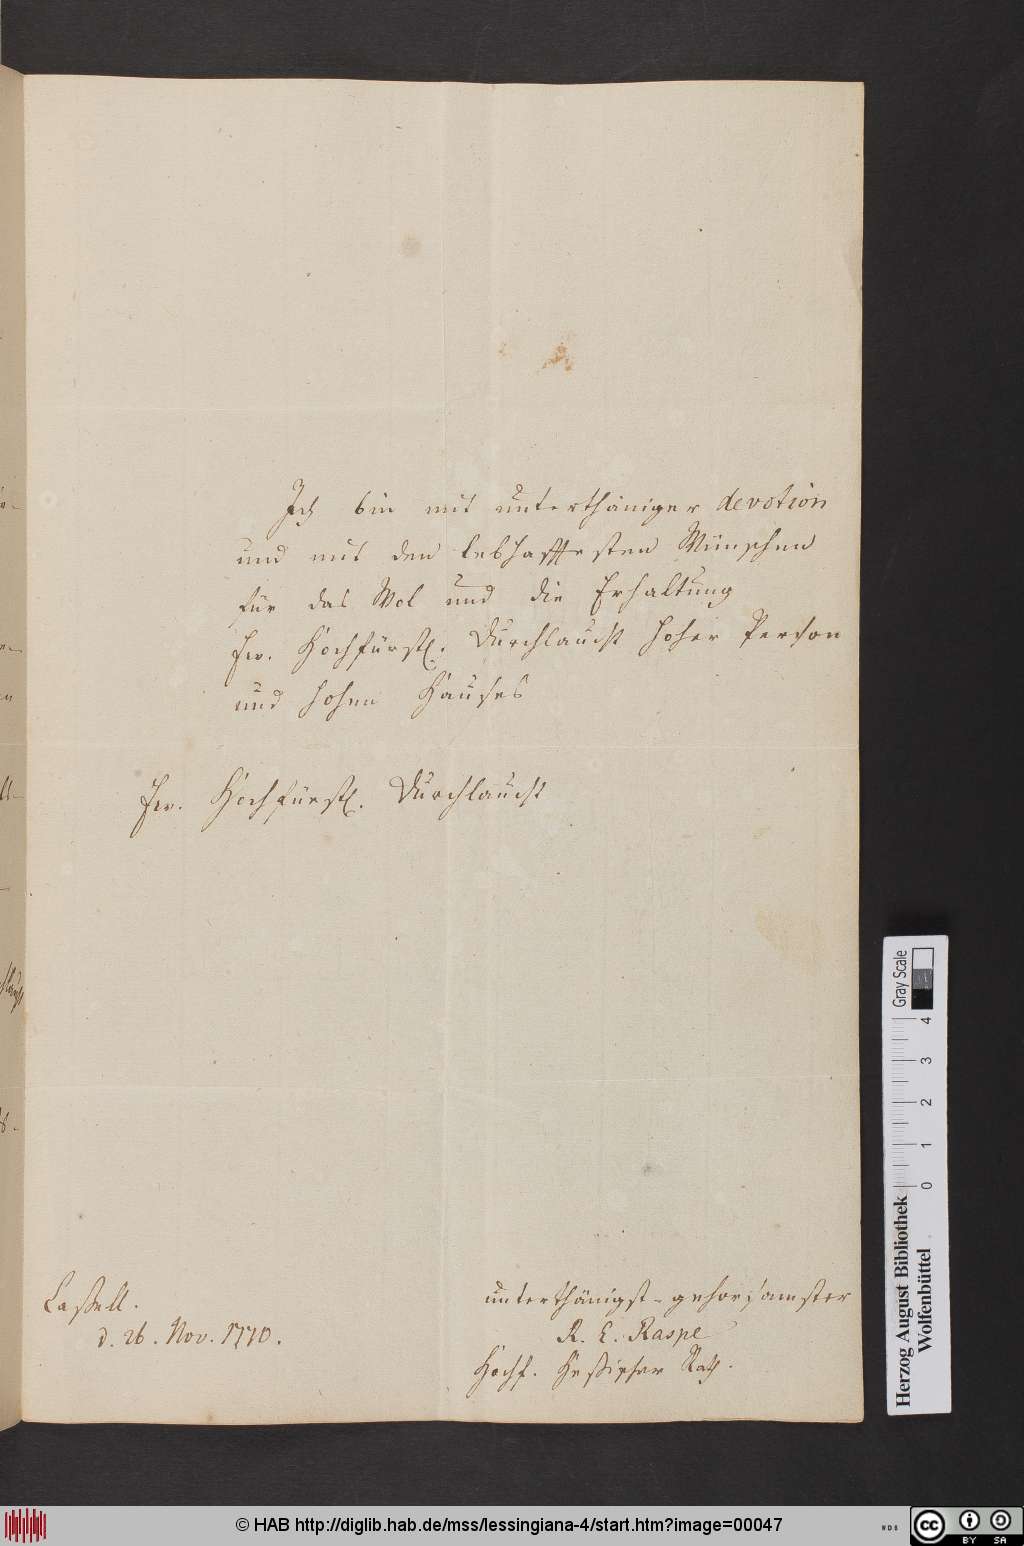 Ich bin mit unterthäniger devotion
und mit den lebhafftesten Wünschen
für das Wol und die Erhaltung
Ew. Hochfürstl. Durchlaucht hoher Person
und hohen Hauses
Ew. Hochfürstl. Durchlaucht
Cassell.
d. 26. Nov. 1770.
unterthänigst-gehorsamster
R. E. Raspe
Hochf. Heßischer Rath.
Gray Scale
0 1 2 3 4
Herzog August Bibliothek
Wolfenbüttel
© HAB http://diglib.hab.de/mss/lessingiana-4/start.htm?image=00047
cc BY SA